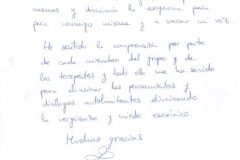 menos y disminuir la exigencia para
para conmigo misma y a sacar mi voz.
He sentido la comprensión por parte
de cada miembro del grupo y de
los terapeutas y todo ello me ha servido
para eliminar los pensamientos y
diálogos autolimitantes eliminando
la vergüenza y miedo escénico.
Muchas gracias